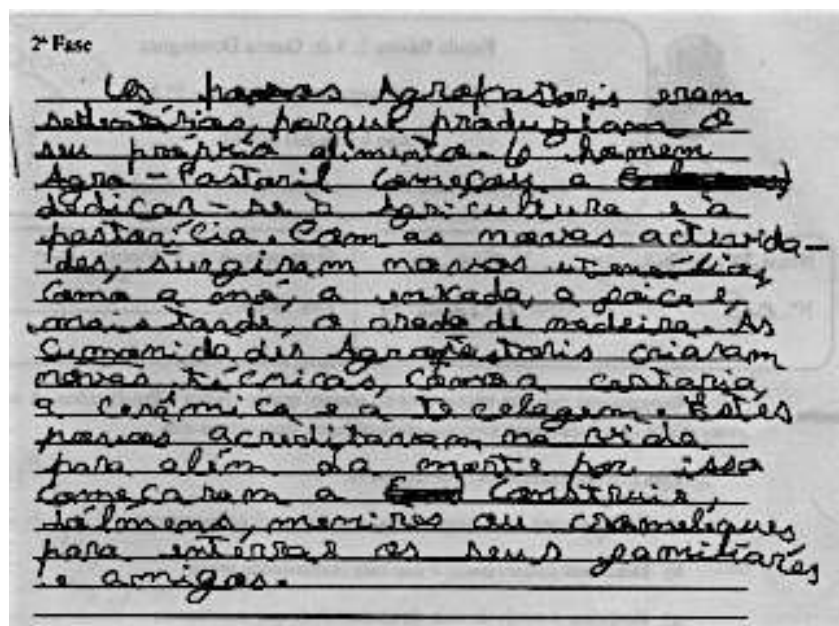 2ª Fase
Os povos Agropastoris eram
sedentários, porque produziam o
seu próprio alimento. O homem
Agro-Pastoril começou a
dedicar-se à Agricultura e à
pastorícia. Com as novas activida-
des, surgiram novos utensílios,
como a mó, a enxada, a foice e,
mais tarde, o arado de madeira. As
Comonidades Agropastoris criaram
novas técnicas, como a cestaria,
a cerâmica e a tecelagem. Estes
povos acreditavam na vida
para além da morte por isso
começaram a construir,
dólmens, menires ou cromeleques,
para enterrar os seus familiares
e amigos.